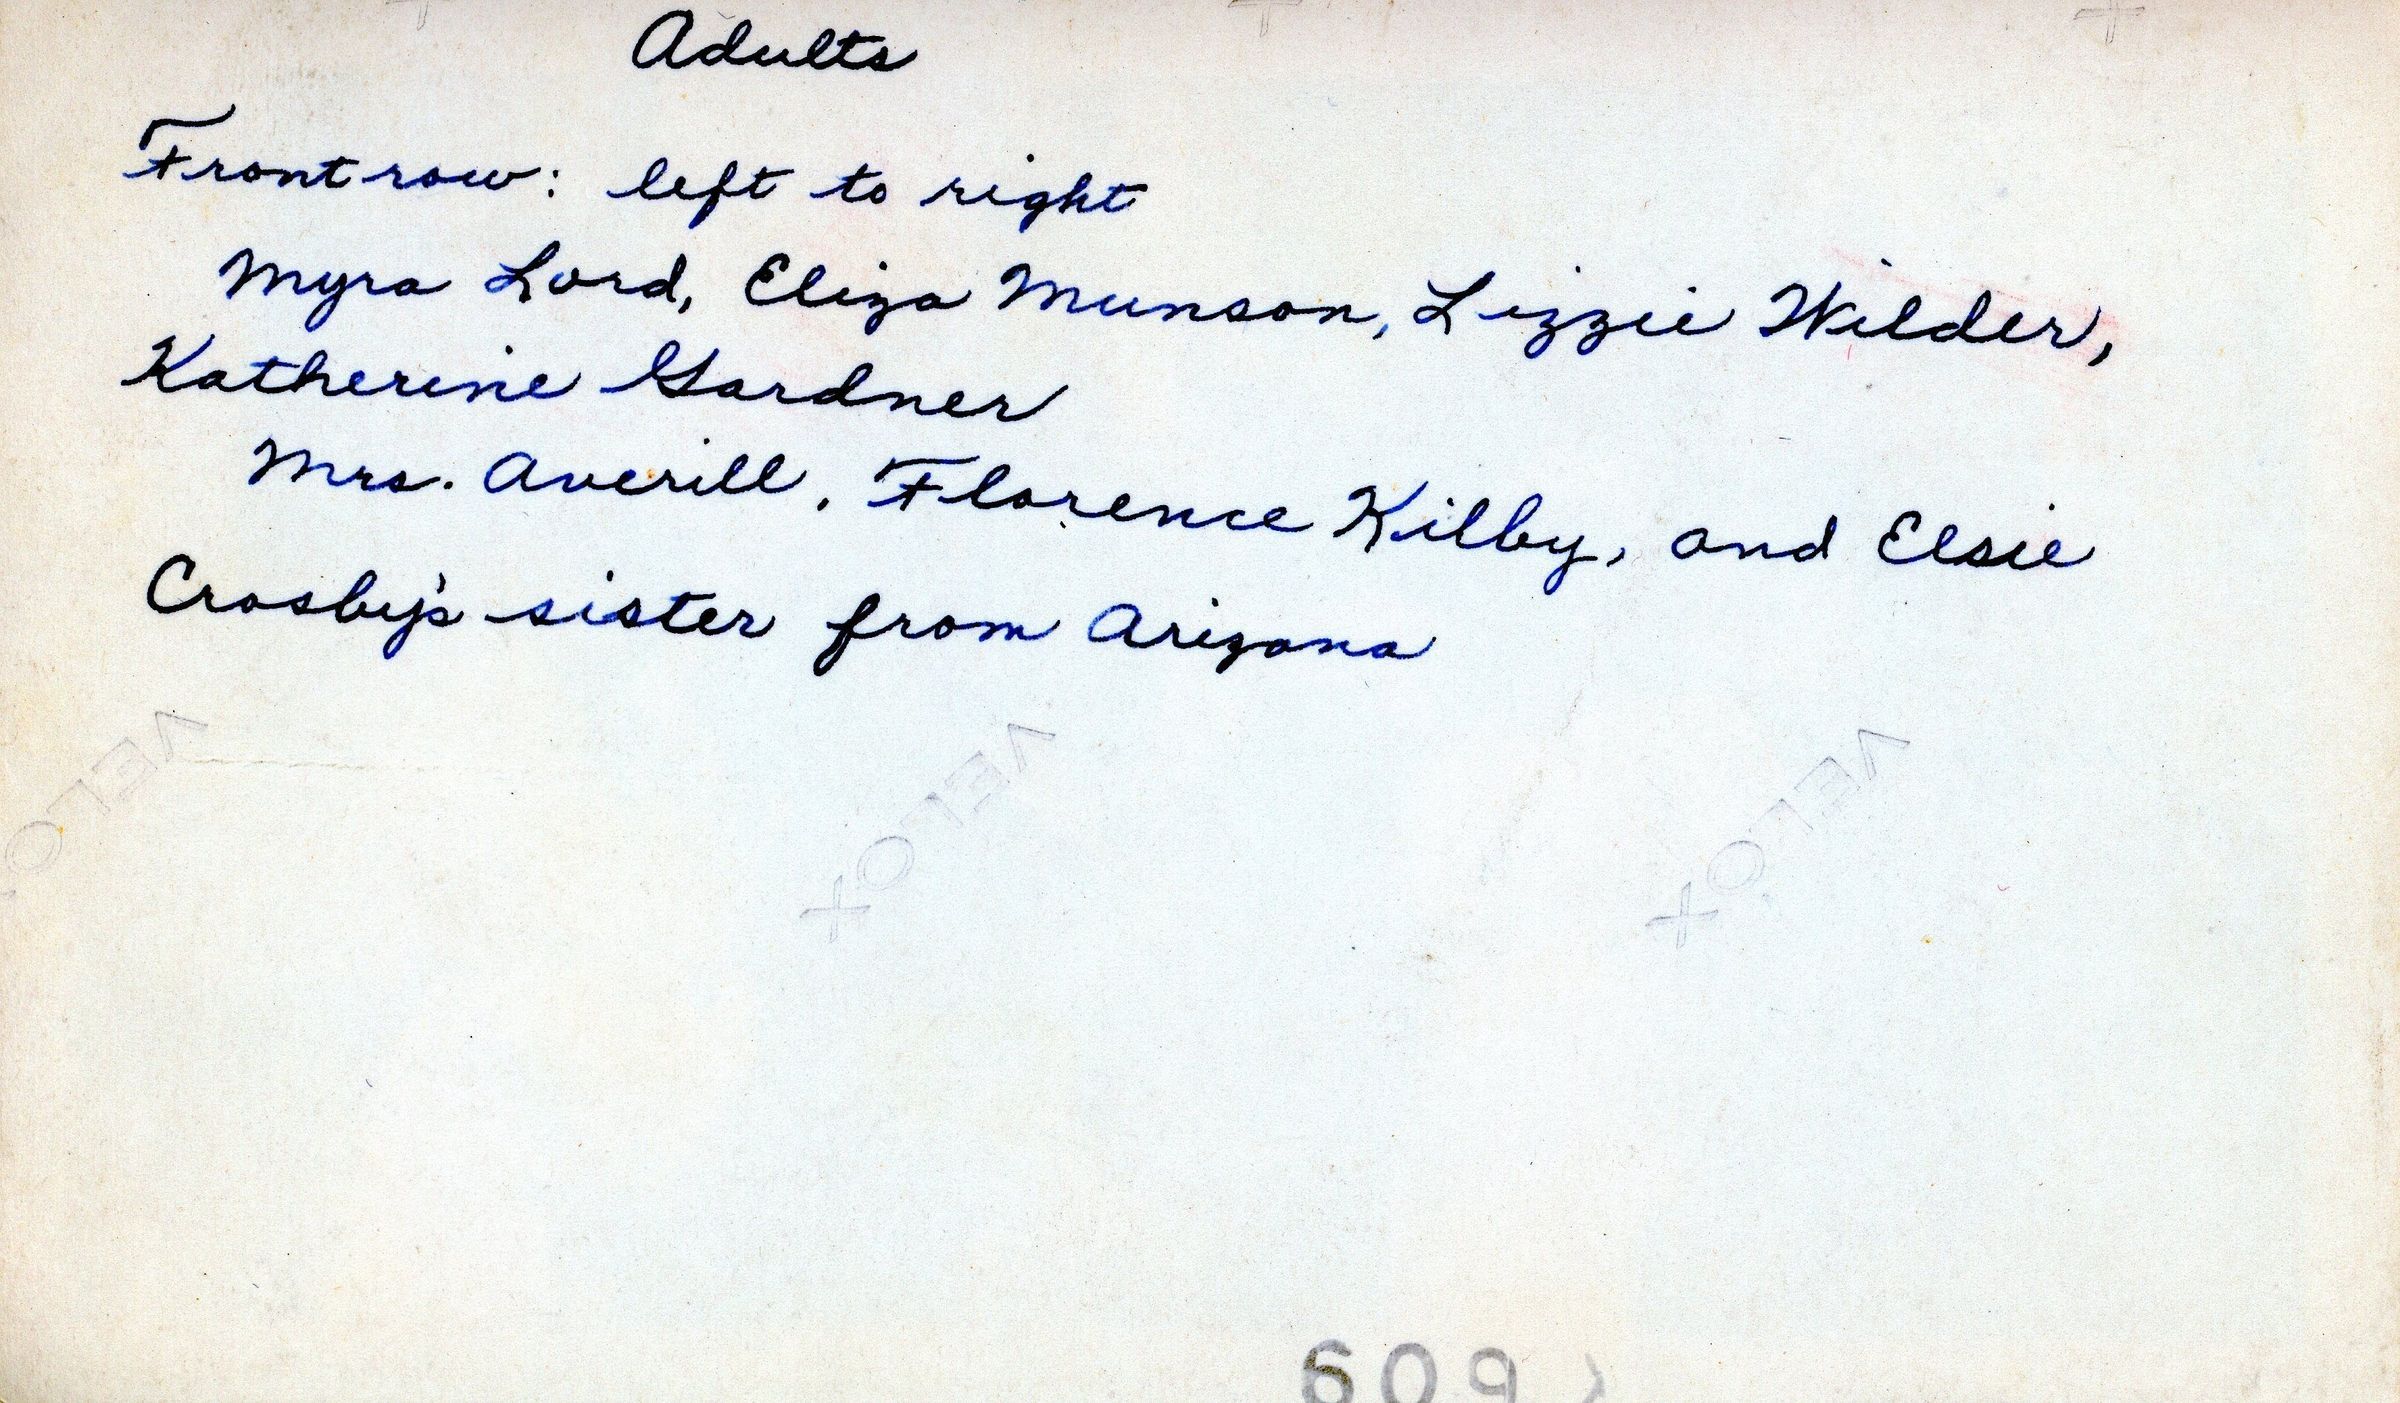 Adults
Front row: left to right
Myra Lord, Eliza Munson, Lizzie Wilder,
Katherine Gardner
Mrs. Averill, Florence Kilby, and Elsie
Crosby's sister from Arizona
VELOX
VELOX
VELOX
609